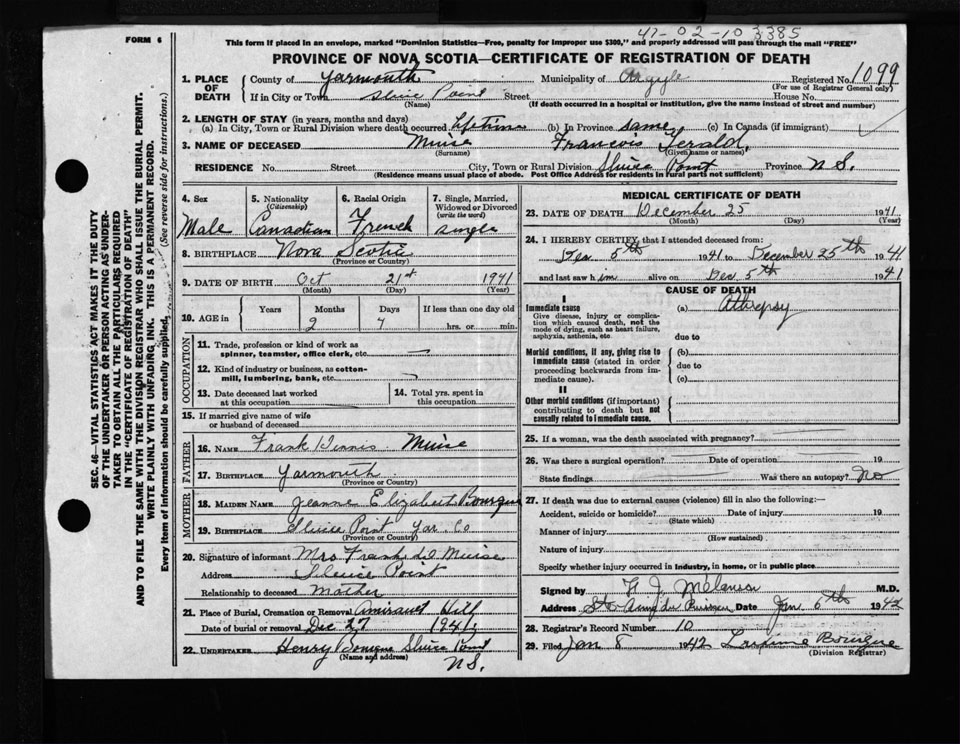 47-02-10 3385
FORM 6
This form if placed in an envelope, marked "Dominion Statistics—Free, penalty for improper use $300," and properly addressed will pass through the mail "FREE"
PROVINCE OF NOVA SCOTIA—CERTIFICATE OF REGISTRATION OF DEATH
SEC. 46—VITAL STATISTICS ACT MAKES IT THE DUTY
OF THE UNDERTAKER OR PERSON ACTING AS UNDER-
TAKER TO OBTAIN ALL THE PARTICULARS REQUIRED
IN THE "CERTIFICATE OF REGISTRATION OF DEATH"
AND TO FILE THE SAME WITH THE DIVISION REGISTRAR WHO SHALL ISSUE THE BURIAL PERMIT.
WRITE PLAINLY WITH UNFADING INK. THIS IS A PERMANENT RECORD.
Every item of Information should be carefully supplied. (See reverse side for instructions.)
1. PLACE OF DEATH
County of Yarmouth Municipality of Argyle Registered No. 1099
(For use of Registrar General only)
If in City or Town Sluice Point Street House No.
(Name) (If death occurred in a hospital or institution, give the name instead of street and number)
2. LENGTH OF STAY (in years, months and days)
(a) In City, Town or Rural Division where death occurred lifetime (b) In Province same (c) In Canada (if immigrant)
3. NAME OF DECEASED Muise Francois Gerald.
(Surname) (Given name or names)
RESIDENCE No. Street City, Town or Rural Division Sluice Point Province N S.
(Residence means usual place of abode. Post Office Address for residents in Rural parts not sufficient)
4. Sex Male
5. Nationality (Citizenship) Canadian
6. Racial Origin French
7. Single, Married, Widowed or Divorced (write the word) Single
8. BIRTHPLACE Nova Scotia
(Province or Country)
9. DATE OF BIRTH Oct 21st 1941
(Month) (Day) (Year)
10. AGE in Years Months Days If less than one day old
2 4 hrs. or min.
OCCUPATION
11. Trade, profession or kind of work as spinner, teamster, office clerk, etc. —
12. Kind of industry or business, as cotton-mill, lumbering, bank, etc.
13. Date deceased last worked at this occupation
14. Total yrs. spent in this occupation
15. If married give name of wife or husband of deceased
FATHER
16. NAME Frank Muise
17. BIRTHPLACE Yarmouth
(Province or Country)
MOTHER
18. MAIDEN NAME Jeanne Elizabeth Bourque
19. BIRTHPLACE Sluice Point Yar. Co
(Province or Country)
20. Signature of informant Mrs Frank Muise
Address Sluice Point
Relationship to deceased Mother
21. Place of Burial, Cremation or Removal Amirault Hill
Date of burial or removal Dec 27 1941
22. UNDERTAKER Henry Sluice Point
(Name and address)
N S.
MEDICAL CERTIFICATE OF DEATH
23. DATE OF DEATH December 25 1941
(Month) (Day) (Year)
24. I HEREBY CERTIFY that I attended deceased from:
Dec. 5th 1941 to December 25th 1941
and last saw h im alive on Dec. 5th 1941
CAUSE OF DEATH
I
Immediate cause
Give disease, injury or complication which caused death, not the mode of dying, such as heart failure, asphyxia, asthenia, etc.
(a) Athrepsy
due to
Morbid conditions, if any, giving rise to immediate cause (stated in order proceeding backwards from immediate cause).
(b)
due to
(c)
II
Other morbid conditions (if important) contributing to death but not causally related to immediate cause.
25. If a woman, was the death associated with pregnancy?
26. Was there a surgical operation? Date of operation 19
State findings Was there an autopsy? No
27. If death was due to external causes (violence) fill in also the following:—
Accident, suicide or homicide? Date of injury 19
(State which)
Manner of injury
(How sustained)
Nature of injury
Specify whether injury occurred in industry, in home, or in public place
Signed by M.D.
Address Date Jan. 6th 1942
28. Registrar's Record Number 10
29. Filed Jan 8 1942 Bourque
(Division Registrar)